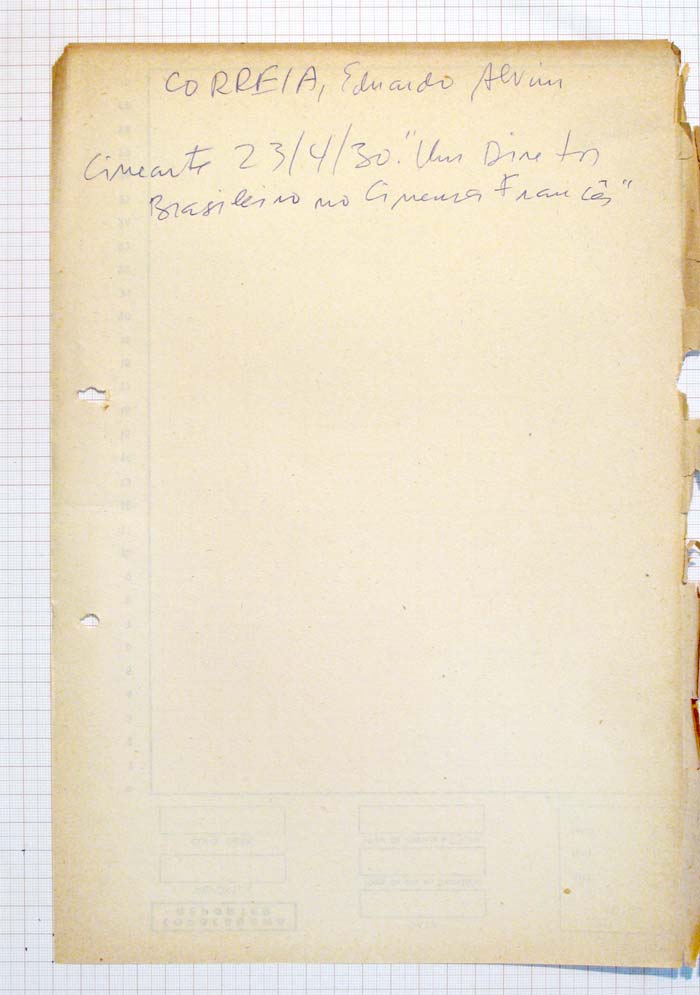 CORREIA, Eduardo Alvim
Cinearte 23/4/30. "Um Diretor
Brasileiro no Cinema Francês"